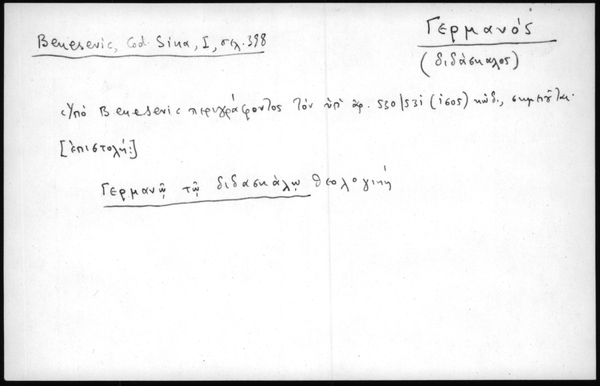 Benesevic, Cod Sina, I, σελ. 398
Γερμανός
(διδάσκαλος)
Ὑπὸ Benesevic περιγράφοντος τὸν ὑπ' ἀρ. 530/531 κώδ., σημειοῦται
[ἐπιστολή:]
Γερμανῷ τῷ διδασκάλῳ θεολογική